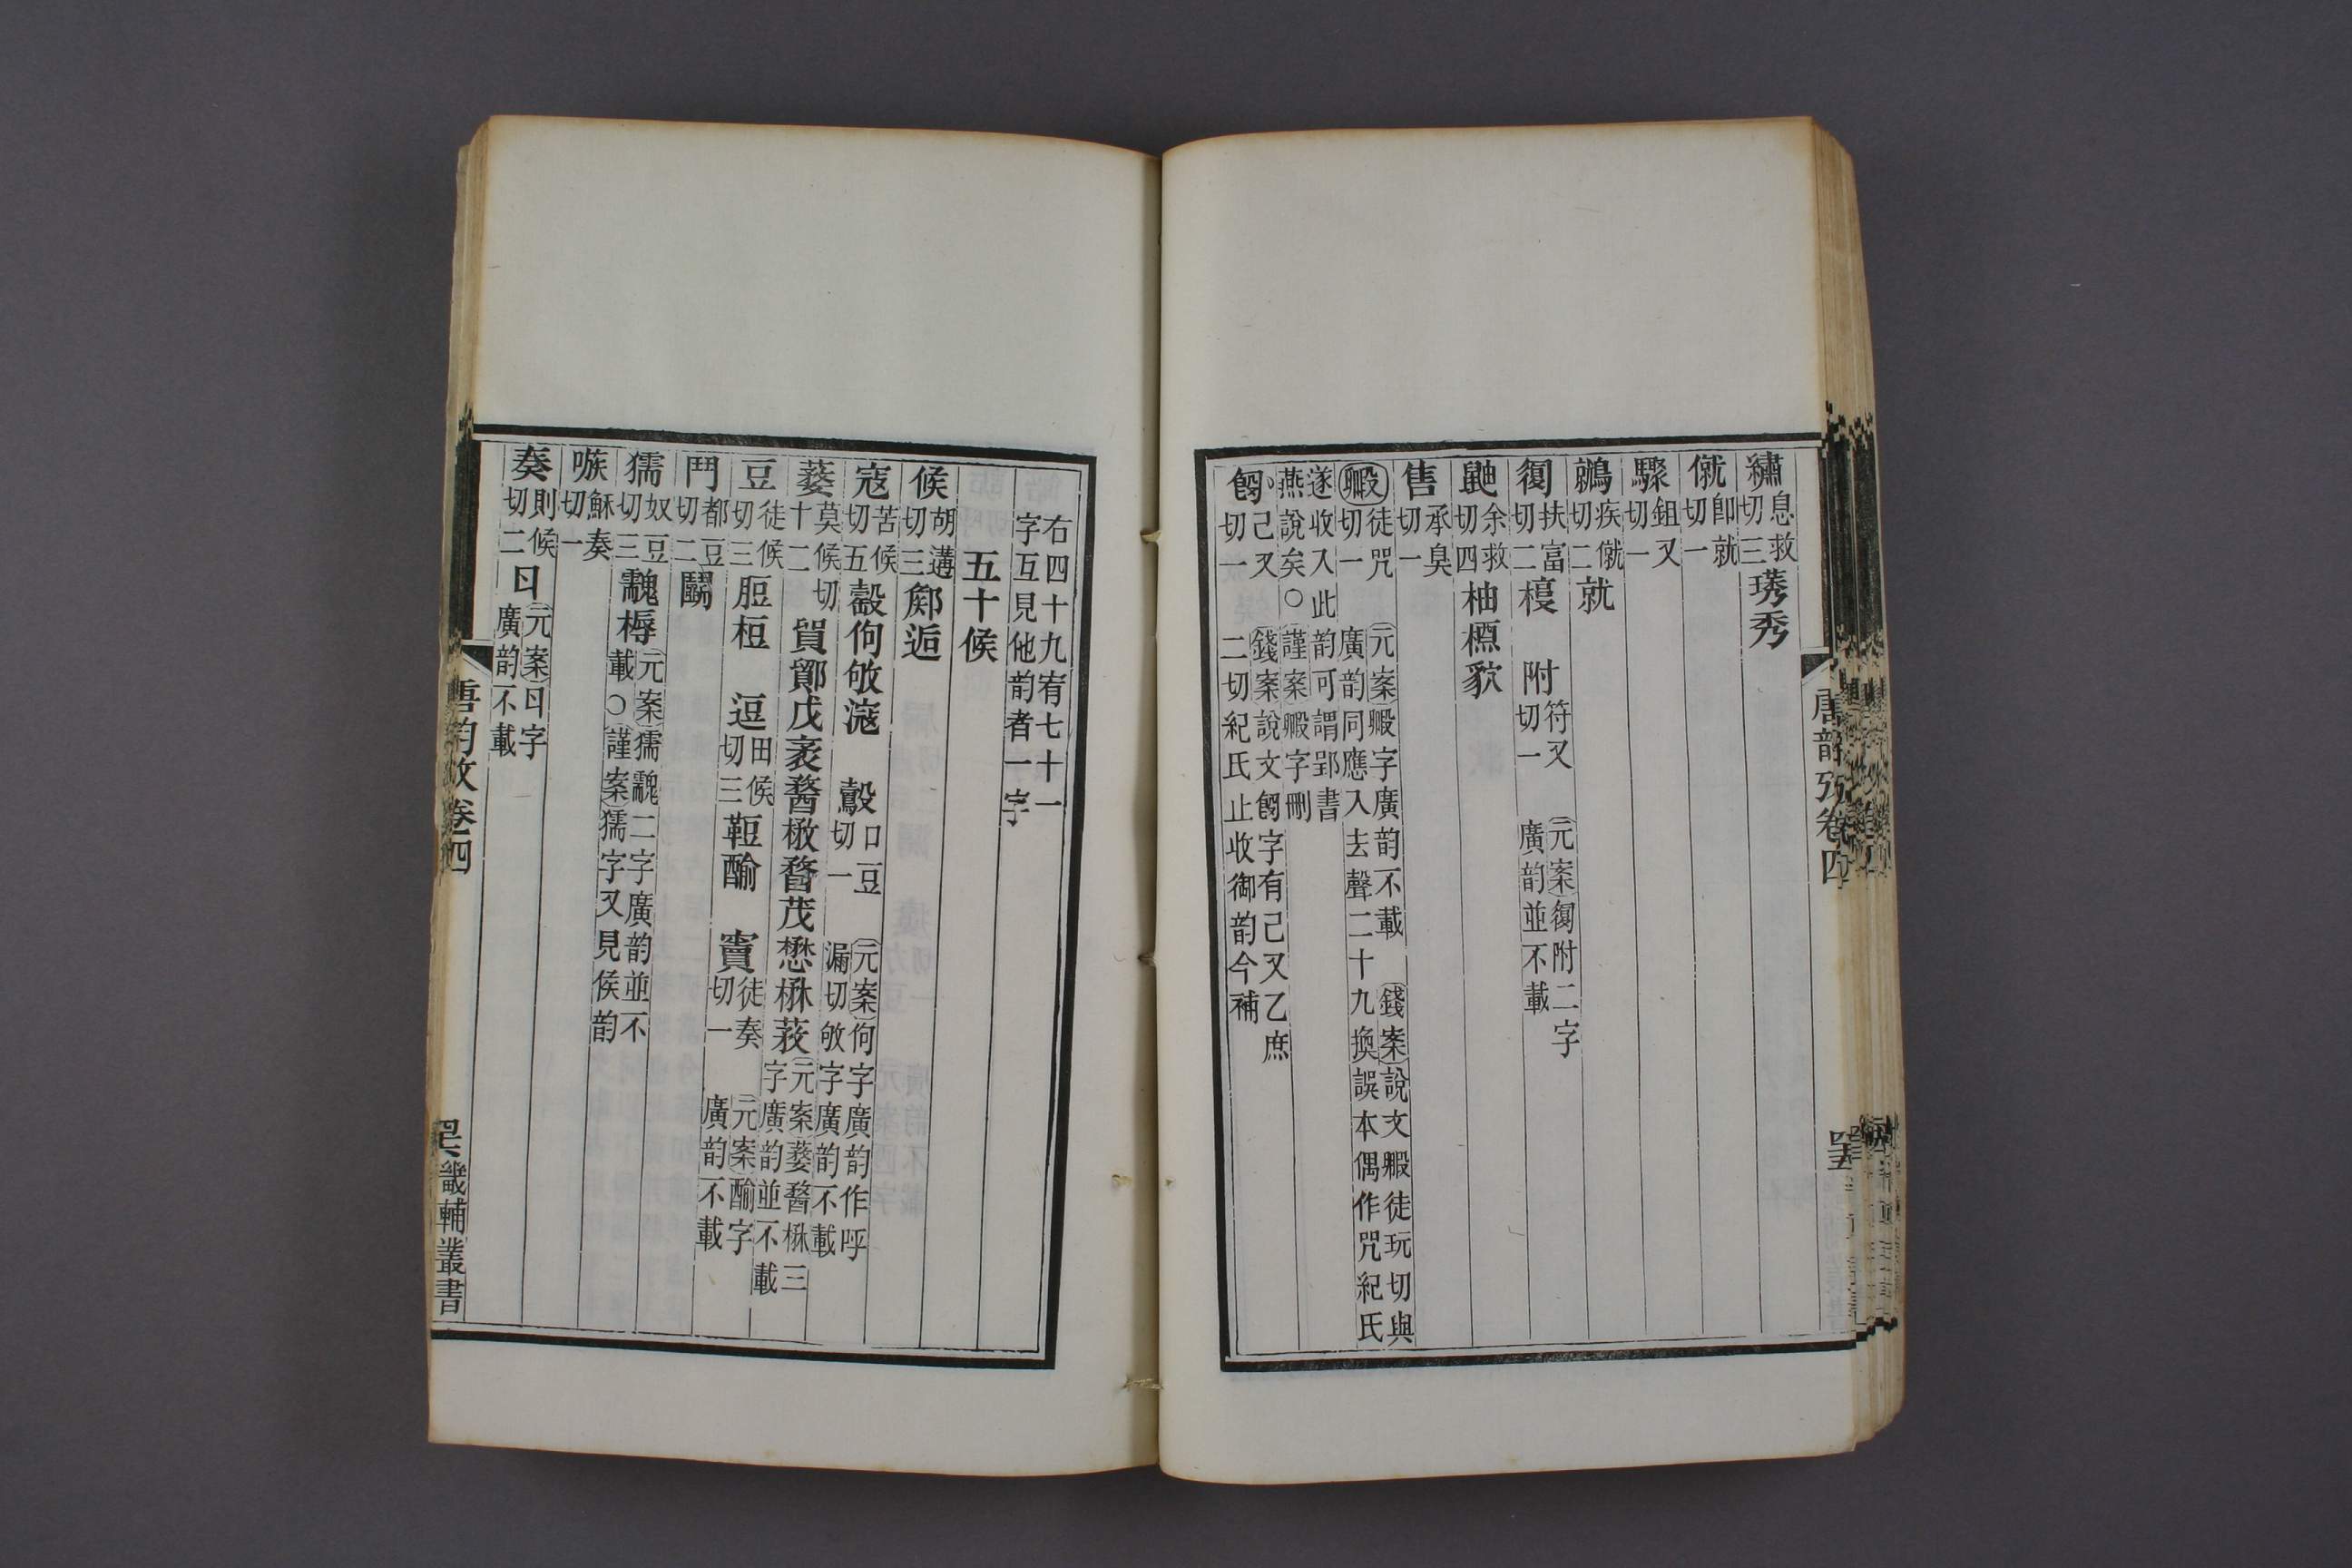 唐韵攷卷四
繡息救切三琇秀
僦卽就切一
驟鉏又切一
鷲疾僦切二就
復扶富切二榎 附符又切一 元案復附二字廣韵並不載
鼬余救切四柚槱貁
售承臭切一
㱾徒咒切一 元案㱾字廣韵不載 錢案說文㱾徒玩切與廣韵同應入去聲二十九換誤本偶作咒紀氏
遂收入此韵可謂郢書
燕說矣○謹案㱾字刪
己又切一 錢案說文字有己又乙庶二切紀氏止收御韵今補
右四十九宥七十一字互見他韵者一字
五十候
候胡遘切三郈逅
寇苦候切五鷇佝敂滱 鷇口豆切一 元案佝字廣韵作呼漏切敂字廣韵不載
莫候切十二貿鄮戊袤楙瞀茂懋 元案三字廣韵並不載
豆徒候切三脰桓 逗田候切三䤱酳 竇徒奏切一 元案酳字廣韵不載
鬥都豆切二鬭
獳奴豆切三䨲槈 元案獳䨲二字廣韵並不載○謹案獳字又見侯韵
嗾穌奏切一
奏則候切二㔿 元案㔿字廣韵不載
唐韵攷卷四
畿輔叢書